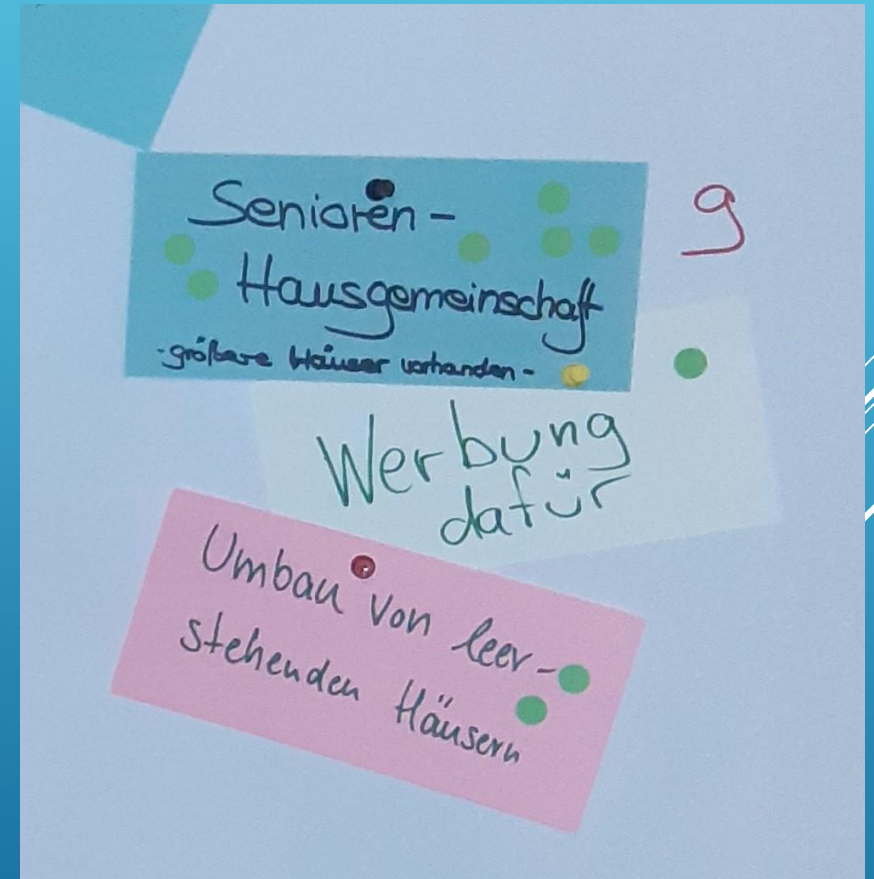 Senioren-
9
Hausgemeinschaft
-größere Häuser vorhanden-
Werbung
dafür
Umbau von leer-
stehenden Häusern